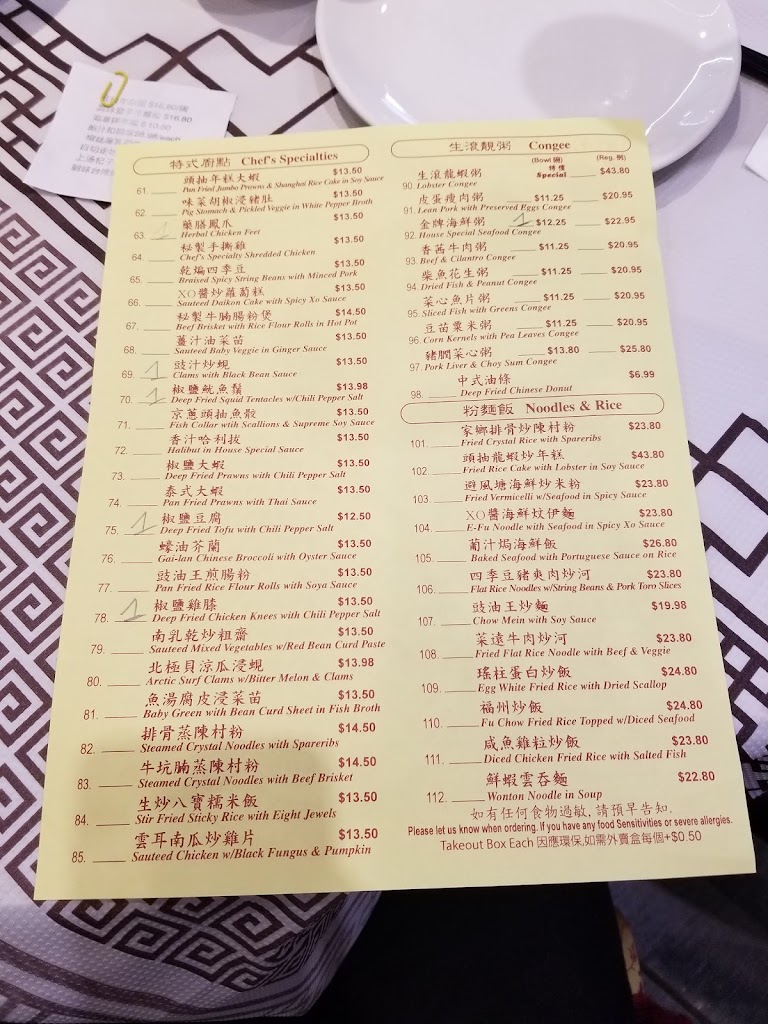 $16.80
$10.80
特式廚點 Chef's Specialties
頭抽年糕大蝦 $13.50
61. Pan Fried Jumbo Prawns & Shanghai Rice Cake in Soy Sauce
味菜胡椒浸豬肚 $13.50
62. Pig Stomach & Pickled Veggie in White Pepper Broth
藥膳鳳爪 $13.50
63. 1 Herbal Chicken Feet
秘製手撕雞 $13.50
64. Chef's Specialty Shredded Chicken
乾煸四季豆 $13.50
65. Braised Spicy String Beans with Minced Pork
XO醬炒蘿蔔糕 $13.50
66. Sauteed Daikon Cake with Spicy Xo Sauce
秘製牛腩腸粉煲 $14.50
67. Beef Brisket with Rice Flour Rolls in Hot Pot
薑汁油菜苗 $13.50
68. Sauteed Baby Veggie in Ginger Sauce
豉汁炒蜆 $13.50
69. 1 Clams with Black Bean Sauce
椒鹽魷魚鬚 $13.98
70. 1 Deep Fried Squid Tentacles w/Chili Pepper Salt
京蔥頭抽魚骰 $13.50
71. Fish Collar wtih Scallions & Supreme Soy Sauce
香汁哈利拔 $13.50
72. Halibut in House Special Sauce
椒鹽大蝦 $13.50
73. Deep Fried Prawns with Chili Pepper Salt
泰式大蝦 $13.50
74. Pan Fried Prawns with Thai Sauce
椒鹽豆腐 $12.50
75. 1 Deep Fried Tofu with Chili Pepper Salt
蠔油芥蘭 $13.50
76. Gai-lan Chinese Broccoli with Oyster Sauce
豉油王煎腸粉 $13.50
77. Pan Fried Rice Flour Rolls with Soya Sauce
椒鹽雞膝 $13.50
78. 1 Deep Fried Chicken Knees with Chili Pepper Salt
南乳乾炒粗齋 $13.50
79. Sauteed Mixed Vegetables w/Red Bean Curd Paste
北極貝涼瓜浸蜆 $13.98
80. Arctic Surf Clams w/Bitter Melon & Clams
魚湯腐皮浸菜苗 $13.50
81. Baby Green with Bean Curd Sheet in Fish Broth
排骨蒸陳村粉 $14.50
82. Steamed Crystal Noodles with Spareribs
牛坑腩蒸陳村粉 $14.50
83. Steamed Crystal Noodles with Beef Brisket
生炒八寶糯米飯 $13.50
84. Stir Fried Sticky Rice with Eight Jewels
雲耳南瓜炒雞片 $13.50
85. Sauteed Chicken w/Black Fungus & Pumpkin
生滾靚粥 Congee
(Bowl 碗) (Reg. 例)
生滾龍蝦粥 特價 Special $43.80
90. Lobster Congee
皮蛋瘦肉粥 $11.25 $20.95
91. Lean Pork with Preserved Eggs Congee
金牌海鮮粥 1 $12.25 $22.95
92. House Special Seafood Congee
香茜牛肉粥 $11.25 $20.95
93. Beef & Cilantro Congee
柴魚花生粥 $11.25 $20.95
94. Dried Fish & Peanut Congee
菜心魚片粥 $11.25 $20.95
95. Sliced Fish with Greens Congee
豆苗粟米粥 $11.25 $20.95
96. Corn Kernels with Pea Leaves Congee
豬膶菜心粥 $13.80 $25.80
97. Pork Liver & Choy Sum Congee
中式油條 $6.99
98. Deep Fried Chinese Donut
粉麵飯 Noodles & Rice
家鄉排骨炒陳村粉 $23.80
101. Fried Crystal Rice with Spareribs
頭抽龍蝦炒年糕 $43.80
102. Fried Rice Cake with Lobster in Soy Sauce
避風塘海鮮炒米粉 $23.80
103. Fried Vermicelli w/Seafood in Spicy Sauce
XO醬海鮮炆伊麵 $23.80
104. E-Fu Noodle with Seafood in Spicy Xo Sauce
葡汁焗海鮮飯 $26.80
105. Baked Seafood with Portuguese Sauce on Rice
四季豆豬爽肉炒河 $23.80
106. Flat Rice Noodles w/String Beans & Pork Toro Slices
豉油王炒麵 $19.98
107. Chow Mein with Soy Sauce
菜遠牛肉炒河 $23.80
108. Fried Flat Rice Noodle with Beef & Veggie
瑤柱蛋白炒飯 $24.80
109. Egg White Fried Rice with Dried Scallop
福州炒飯 $24.80
110. Fu Chow Fried Rice Topped w/Diced Seafood
咸魚雞粒炒飯 $23.80
111. Diced Chicken Fried Rice with Salted Fish
鮮蝦雲吞麵 $22.80
112. Wonton Noodle in Soup
如有任何食物過敏, 請預早告知.
Please let us know when ordering. If you have any food Sensitivities or severe allergies.
Takeout Box Each 因應環保,如需外賣盒每個+$0.50